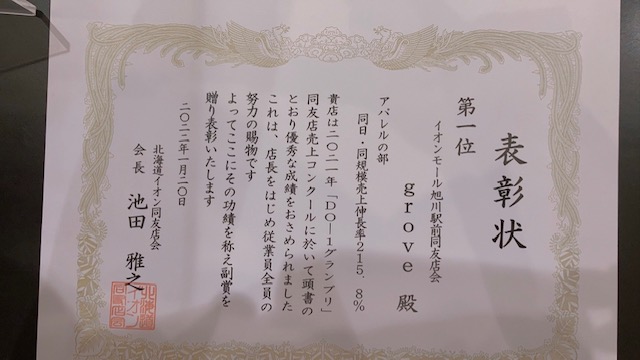 表彰状
第一位
イオンモール旭川駅前同友店会
grove 殿
アパレルの部
同日・同規模売上伸長率215.8%
貴店は二〇二一年「DO―1グランプリ」
同友店売上コンクールに於いて頭書の
とおり優秀な成績をおさめられました
これは、店長をはじめ従業員全員の
努力の賜物です
よってここにその功績を称え副賞を
贈り表彰いたします
二〇二二年一月二〇日
北海道イオン同友店会
会長 池田 雅之